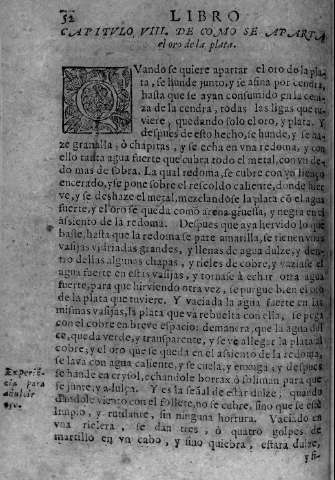 52
LIBRO
CAPITULO VIII. DE COMO SE APARTA
el oro de la plata.
QVando se quiere apartar el oro de la pla
ta, se hunde junto, y se afina por cendra,
hasta que se ayan consumido en la ceni
za de la cendra, todas las ligas que tu
viere, quedando solo el oro, y plata. Y
despues de esto hecho, se hunde, y se ha-
ze granalla, ò chapitas, y se echa en vna redoma, y con
ello tanta agua fuerte que cubra todo el metal, con vn de
do mas de sobra. La qual redoma, se cubre con vn lienço
encerado, y se pone sobre el rescoldo caliente, donde hier
ve, y se deshaze el metal, mezclandose la plata cō el agua
fuerte, y el oro se queda como arena gruessa, y negra en el
assiento de la redoma. Despues que aya hervido lo que
baste, hasta que la redoma se pare amarilla, se tienen vnas
vasijas vidriadas grandes, y llenas de agua dulze, y den-
tro dellas algunas chapas, y rieles de cobre, y vaziase el
agua fuerte en estas vasijas, y tornase à echar otra agua
fuerte, para que hirviendo otra vez, se purgue bien el oro
de la plata que tuviere. Y vaciada la agua fuerte en las
mismas vasijas, la plata que và rebuelta con ella, se pega
con el cobre en breve espacio: demanera, que la agua dul
ce, queda verde, y transparente, y se ve allegar la plata al
cobre, y el oro que se queda en el assiento de la redoma,
se lava con agua caliente, y se cuela, y enxuga: y despues
se hunde en crysol, echandole borrax ò soliman para que
se junte, y adulça. Y es la señal de estar dulze, quando
dandole viento con el follete, no se cubre, sino que se està
limpio, y rutilante, sin ninguna hostura. Vaciado en
vna rielera, se dan tres, ò quatro golpes de
martillo en vn cabo, y sino quiebra, estarà dulze,
y si-
Experiē
cia para
adulcir